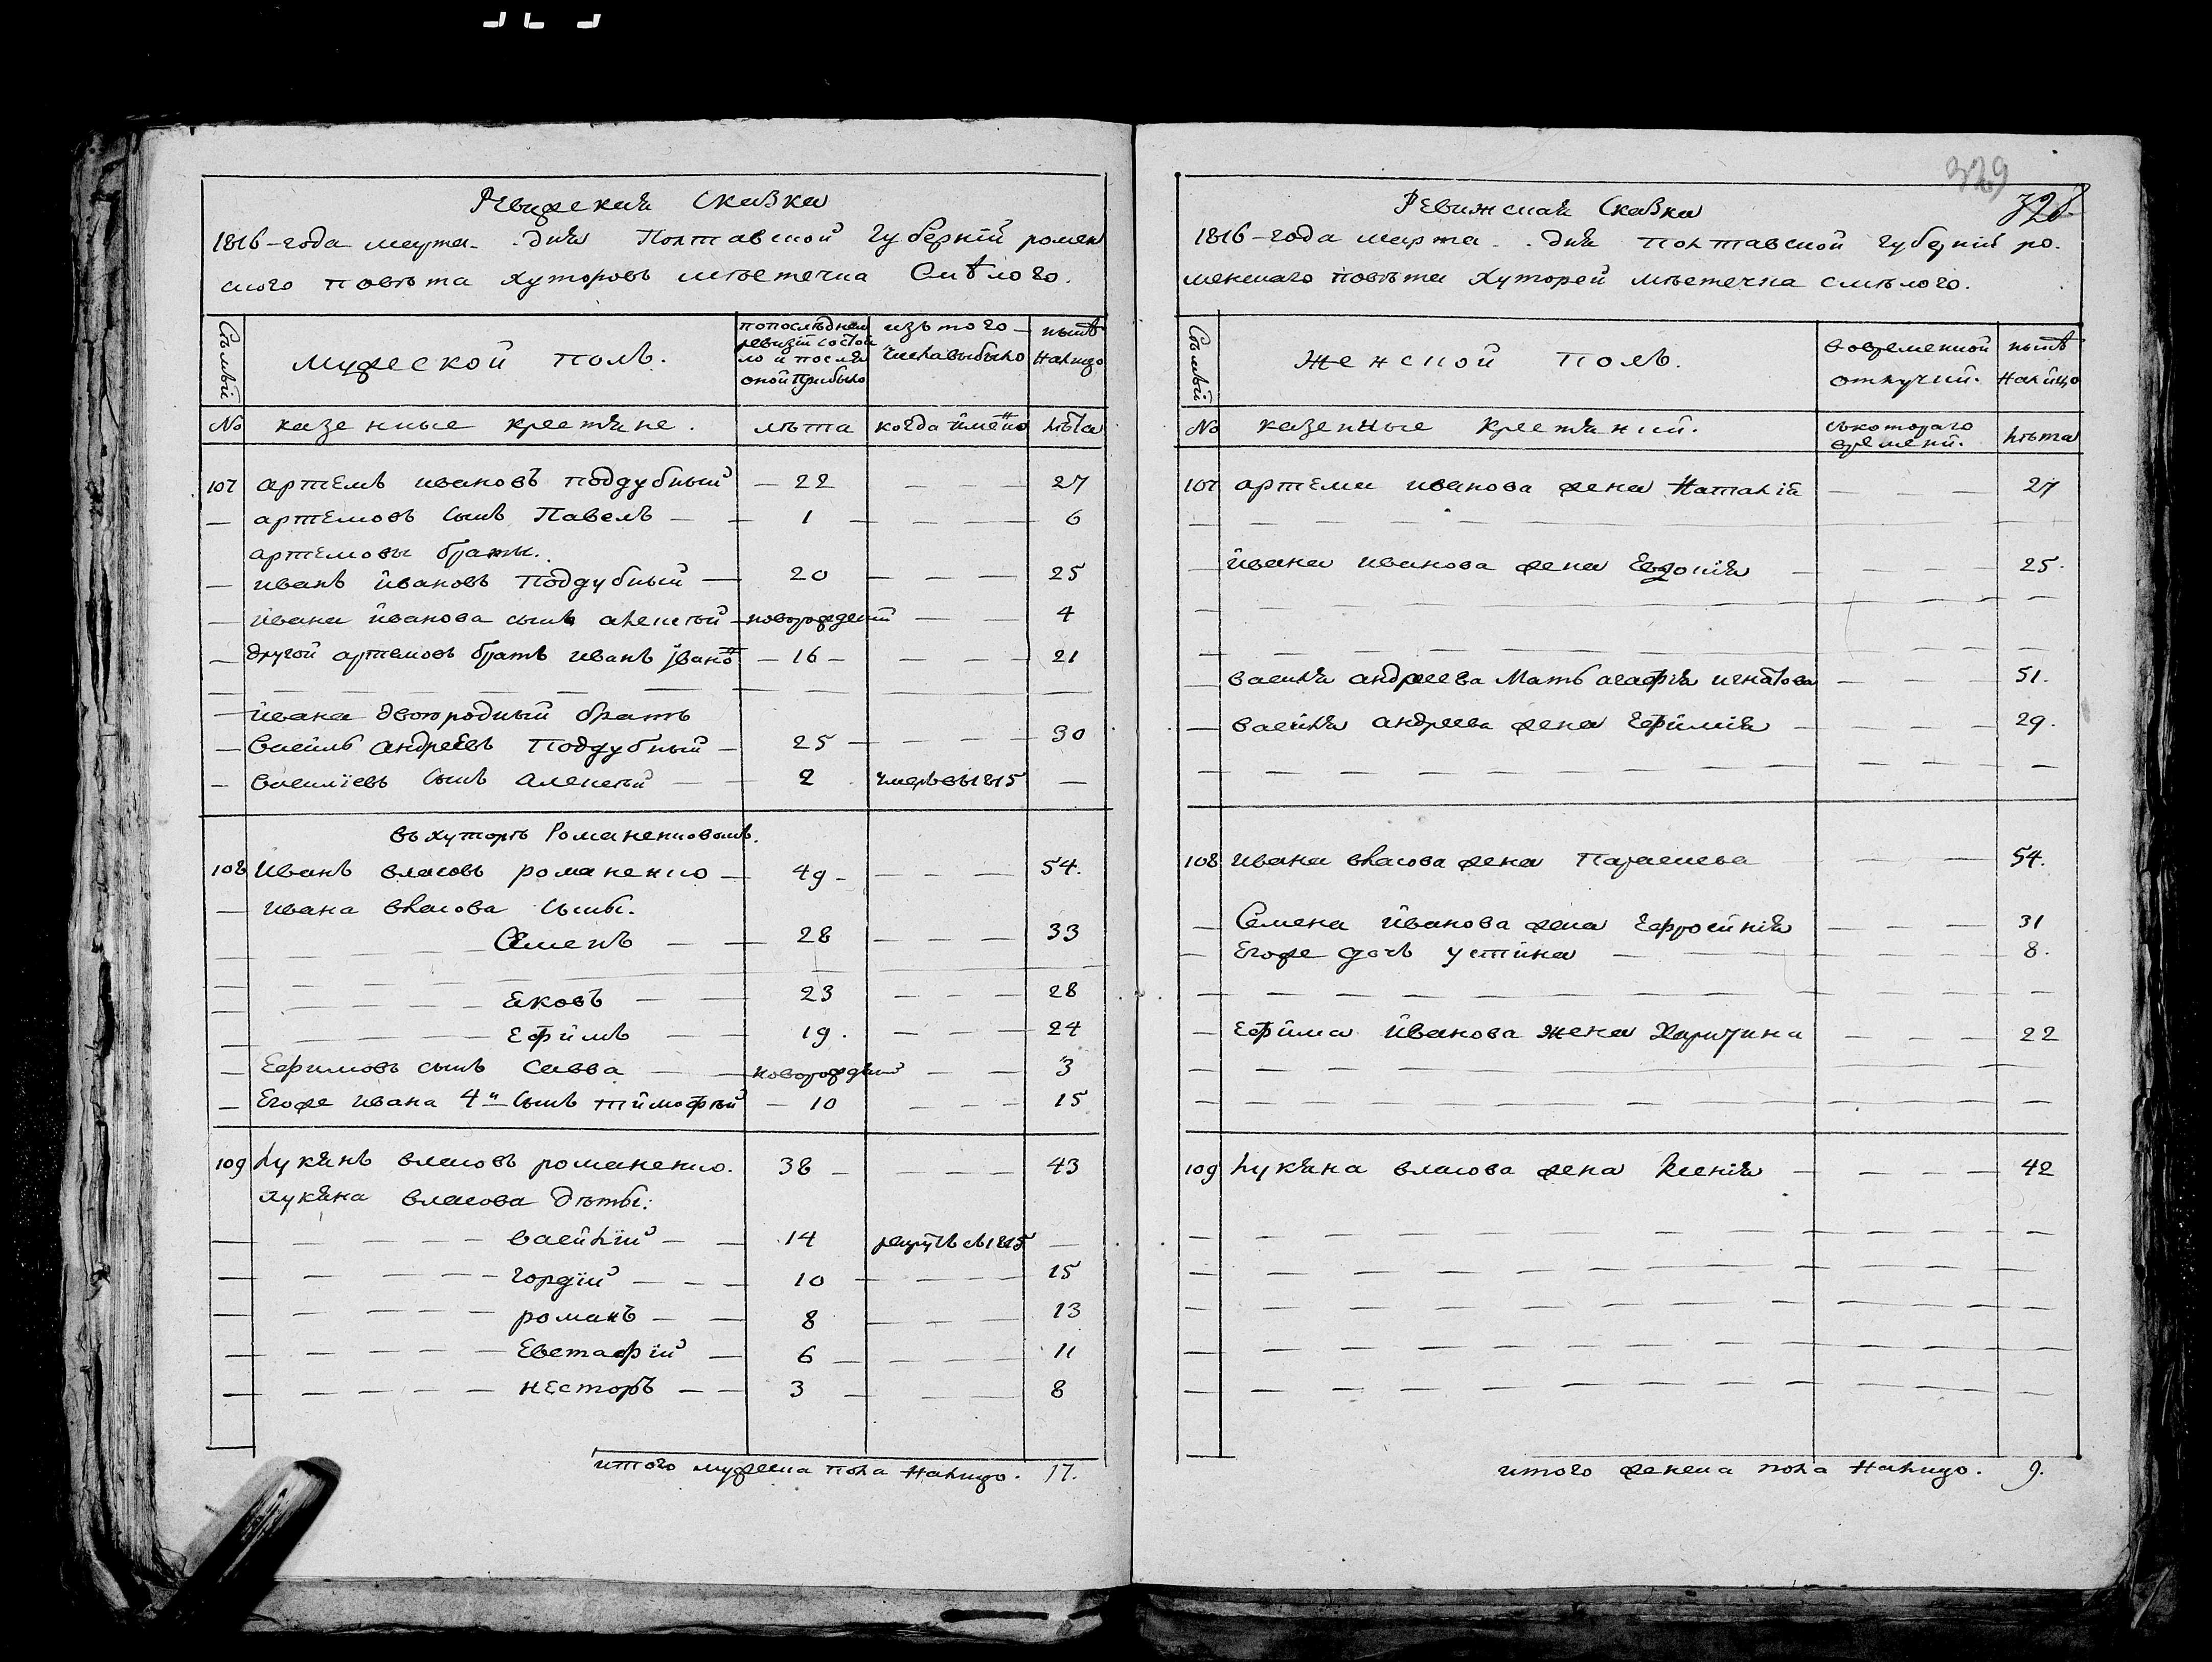 Ревижская Сказка
1816-года марта - дня Полтавской губерній ромен
ского повѣта хуторовъ мѣстечка Смѣлого.
Сѣмьй
мужеской полъ.
попослѣдней
ревизіи состоя
ло и после
оной прибыло
изъ того
числа выбыло
нынѣ
налицо
No казенные крестяне. лѣта когда имено лѣта
107 артемъ ивановъ поддубный — 22 — — — 27
— артемовъ сынъ Павелъ — 1 — — — 6
артемовы браты.
— иванъ ивановъ поддубный — 20 — — — 25
— ивана иванова сынъ алексѣй — новорожденій — — 4
— другой артемовъ братъ иванъ івано — 16 — — — — 21
— ивана двоюродный братъ
— василь андреевъ поддубный — 25 — — — 30
— василіевъ сынъ алексѣй — 2 умеръ въ 1815 —
въ хуторѣ Романенковомъ.
108 иванъ власовъ романенко — 49 — — — — 54.
— ивана власова сыны.
— — — — Семенъ — — 28 — — — 33
— — — — Яковъ — — 23 — — — 28
— — — — Ефимъ — — 19. — — — 24
— Ефимовъ сынъ Савва — новорожденій — — 3
— Егоже ивана 4й сынъ тимофѣй — 10 — — — 15
109 лукянъ власовъ романенко. 38 — — — — 43
лукяна власова дѣты:
— — — — василій — — 14 рекрутъ съ 1815 —
— — — — гордій — — — 10 — — — — 15
— — — — романъ — — 8 — — — 13
— — — — Евстафій — 6 — — — — 11
— — — — несторъ — — 3 — — — 8
итого мужеска пола налицо. 17.
329
328
Ревижская Сказка
1816-года марта - дня полтавской губерній ро.
менскаго повѣта хуторей мѣстечка смѣлого.
Сѣмьй
женской полъ.
вовременной
отлучки.
нынѣ
налицо
No казенные крестянки. съкотораго
времени. лѣта
107 артема иванова жена Наталія — — — 27
— ивана иванова жена Евдокія — — — — 25.
— василя андреева мать агафія игнатова — — — 51.
— василя андреева жена Ефимія — — — — 29.
108 ивана власова жена Параскева — — 54.
— Семена иванова жена Ефросинія — — — 31
— Егоже дочь устина — — — 8.
— Ефима иванова жена Харитина — — — 22
109 лукяна власова жена ксенія — — — — 42
итого женска пола налицо. 9.